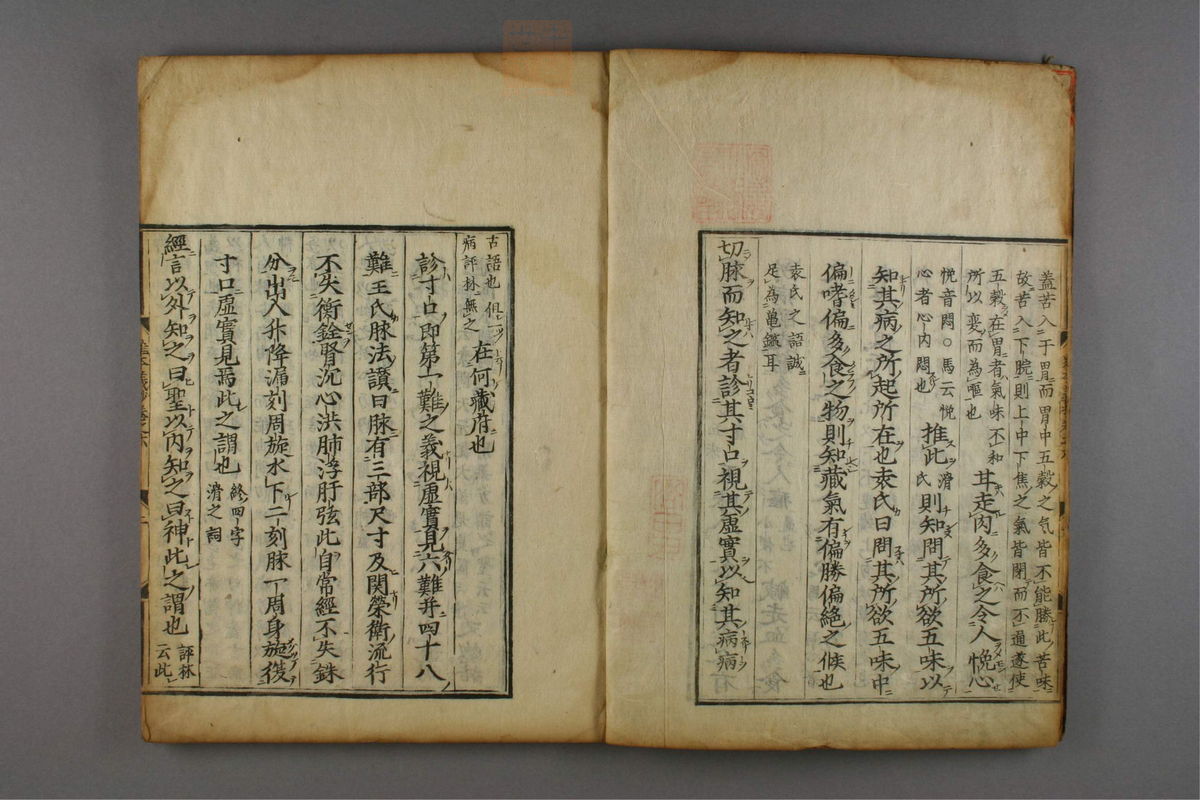 蓋苦入于胃而胃中五穀之気皆不能勝此苦味
故苦入下脘則上中下焦之氣皆閉而不通遂使
五穀在胃者氣味不和
所以変而為嘔也
甘走肉多食之令人悗心
悗音悶○馬云悗
心者心内悶也
推此
滑
氏
則知問其所欲五味以
知其病之所起所在也袁氏曰問其所欲五味中
偏嗜偏多食之物則知藏氣有偏勝偏絶之候也
袁氏之語誠
足為亀鑑耳
切脉而知之者診其寸口視其虚實以知其病病
古語也俱一
病評林無之
在何藏府也
診寸口即第一難之義視虚實見六難并四十八
難王氏脉法讃曰脉有三部尺寸及関榮衛流行
不失衡銓腎沉心洪肺浮肝弦此自常經不失銖
分出入升降漏刻周旋水下二刻脉一周身旋復
寸口虚實見焉此之謂也
終四字
滑之詞
經言以外知之曰聖以内知之曰神此之謂也
評林
云此